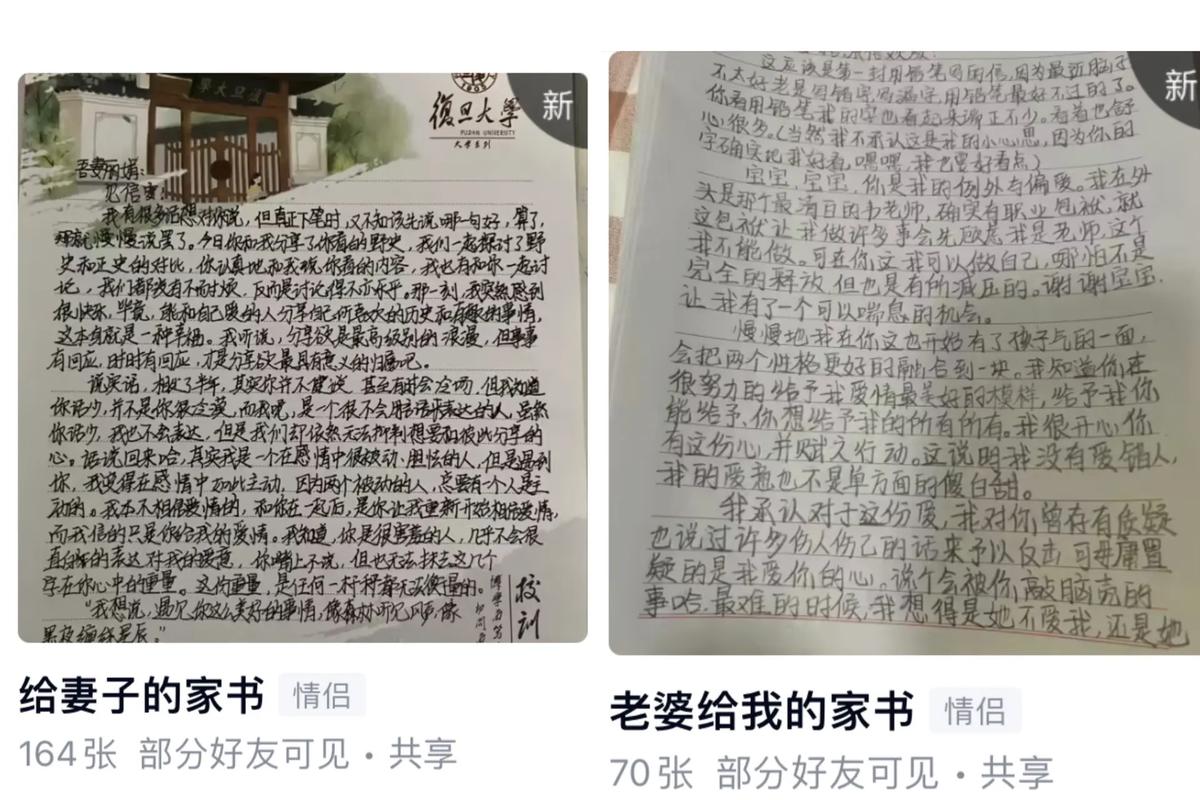 新
復旦大學
FUDAN UNIVERSITY
大学系列
吾妻丽娟：
见信安！
我有很多话想对你说，但真正下笔时，又不知该先说哪一句好，算了，
那就慢慢说罢了。今日你和我分享了你看的野史，我们一起探讨了野
史和正史的对比，你认真地和我说你看的内容，我也有和你一起讨
论，我们都没有不耐烦，反而是讨论得不亦乐乎。那一刻，我突然感到
很快乐，毕竟，能和自己爱的人分享自己所喜欢的历史和有趣的事情，
这本身就是一种幸福。我听说，分享欲是最高级别的浪漫，但事事
有回应，时时有回应，才是分享欲最具有意义的归属吧。
说实话，相处了半年，其实你并不健谈，甚至有时会冷场，但我知道
你话少，并不是你很冷漠，而我呢，是一个很不会用话语表达的人，虽然
你话少，我也不会表达，但是我们却依然无法抑制想要和彼此分享的
心。话说回来哈，其实我是一个在感情中很被动、胆怯的人，但是遇到
你，我变得在感情中如此主动，因为两个被动的人，总要有一个人是主
动的。我本不相信爱情的，和你在一起后，是你让我重新开始相信爱情，
而我信的只是你给我的爱情。我知道，你是很害羞的人，几乎不会很
直白的表达对我的爱意，你嘴上不说，但也无法抹去这几个
字在你心中的重量。这份重量，是任何一杆秤都无法衡量的。
“我想说，遇见你这么美好的事情，像森林听见风声，像
黑夜缠绵星辰。”
校训
给妻子的家书 情侣
164张 部分好友可见·共享
新
这应该是第一封用铅笔写的信，因为最近脑子
不太好老是写错字、写漏字，用铅笔最好不过的了。
你看用铅笔我的字也看起来端正不少。看着也舒
心很多。（当然我不承认这是我的小心思，因为你的
字确实比我好看，嘿嘿，我也要好看点）
宝宝，宝宝，你是我的例外与偏爱。我在外
头是那个最清白的书老师，确实有职业包袱，就
这包袱让我做许多事会先顾忌我是老师，这个
我不能做。可在你这我可以做自己，哪怕不是
完全的释放，但也是有所减压的。谢谢宝宝，
让我有了一个可以喘息的机会。
慢慢地我在你这也开始有了孩子气的一面，
会把两个性格更好的融合到一块。我知道你在
很努力的给予我爱情最美好的模样，给予我你
能给予、你想给予我的所有所有。我很开心，你
有这份心，并赋之行动。这说明我没有爱错人，
我的爱意也不是单方面的傻白甜。
我承认对于这份爱，我对你曾存有质疑
也说过许多伤人伤己的话来予以反击，可毋庸置
疑的是我爱你的心。说个会被你敲脑壳的
事哈，最难的时候，我想得是她不爱我，还是她
老婆给我的家书 情侣
70张 部分好友可见·共享